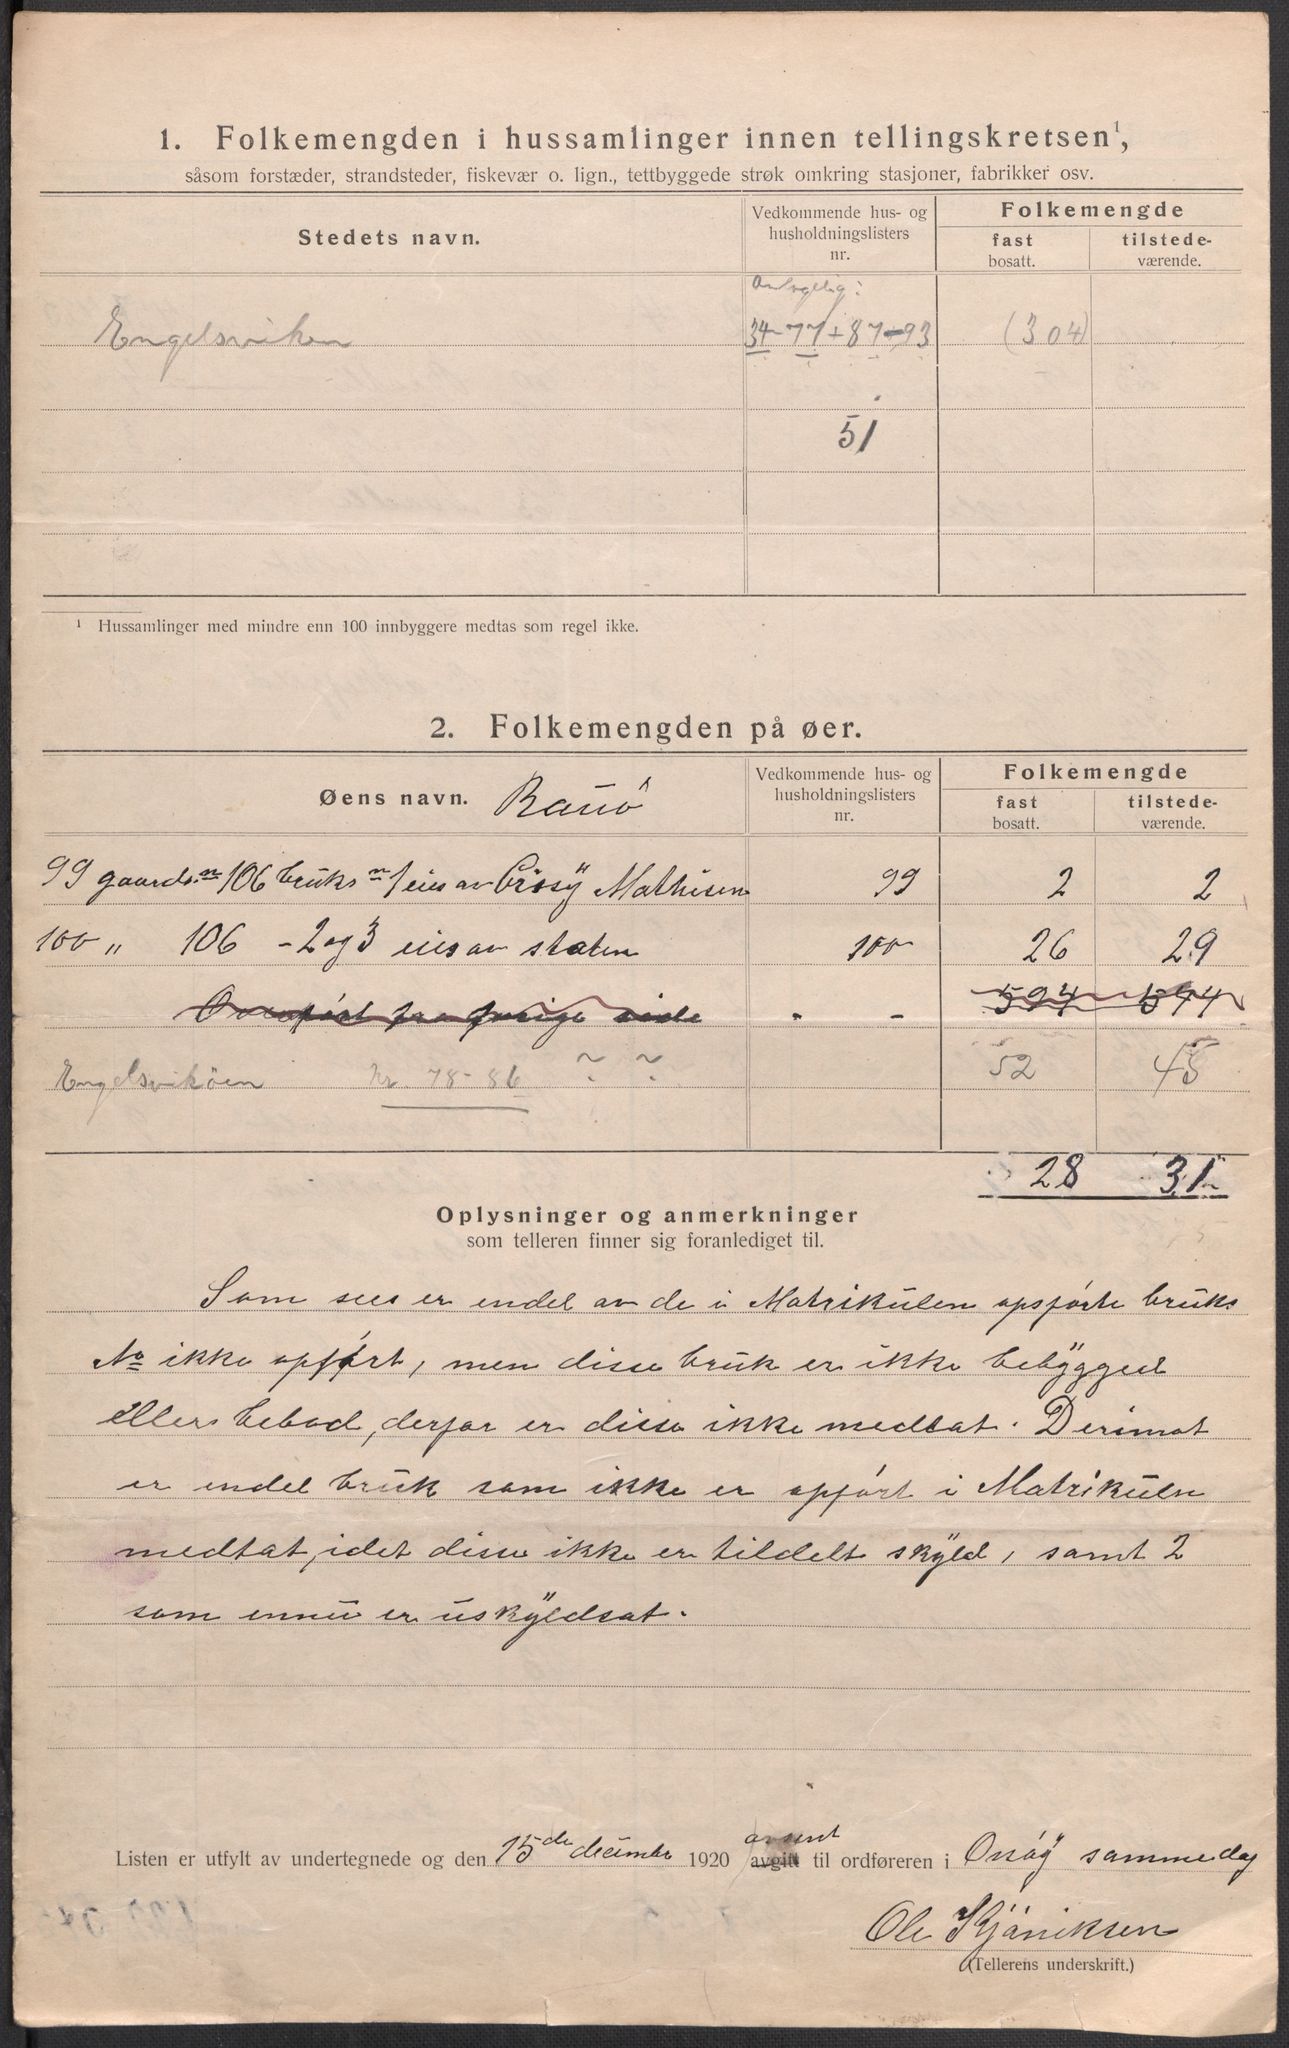 1. Folkemengden i hussamlinger innen tellingskretsen¹,
såsom forstæder, strandsteder, fiskevær o. lign., tettbyggede strøk omkring stasjoner, fabrikker osv.
Stedets navn.
Vedkommende hus- og husholdningslisters nr.
Folkemengde
fast bosatt.
tilstede-værende.
Antagelig:
Engelsviken 34-77+87-93 (304)
51
¹ Hussamlinger med mindre enn 100 innbyggere medtas som regel ikke.
2. Folkemengden på øer.
Øens navn. Rauö
Vedkommende hus- og husholdningslisters nr.
Folkemengde
fast bosatt.
tilstede-værende.
99 gaards n 106 bruks n 1 eies av Mathisen 99 2 2
100 " 106 - 2 og 3 eies av staten 100 26 29
Overført fra forrige side " - 594 594
Engelsvikøen Nr. 78-86 ~ ~ 52 48
28 31
Oplysninger og anmerkninger
som telleren finner sig foranlediget til.
Som sees er endel av de i Matrikülen opførte brüks
No ikke opført, men disse brük er ikke bebÿgged
ellers bebod, derfor er disse ikke medtat. Derimot
er endel brük som ikke er opført i Matrikülen
medtat, idet disse ikke er tildelt skÿld, samt 2
som ennü er üskÿldsat.
Listen er utfylt av undertegnede og den 15de décember 1920 avgitt avsent til ordføreren i Onsøÿ samme dag
Ole Kjöniksen
(Tellerens underskrift.)